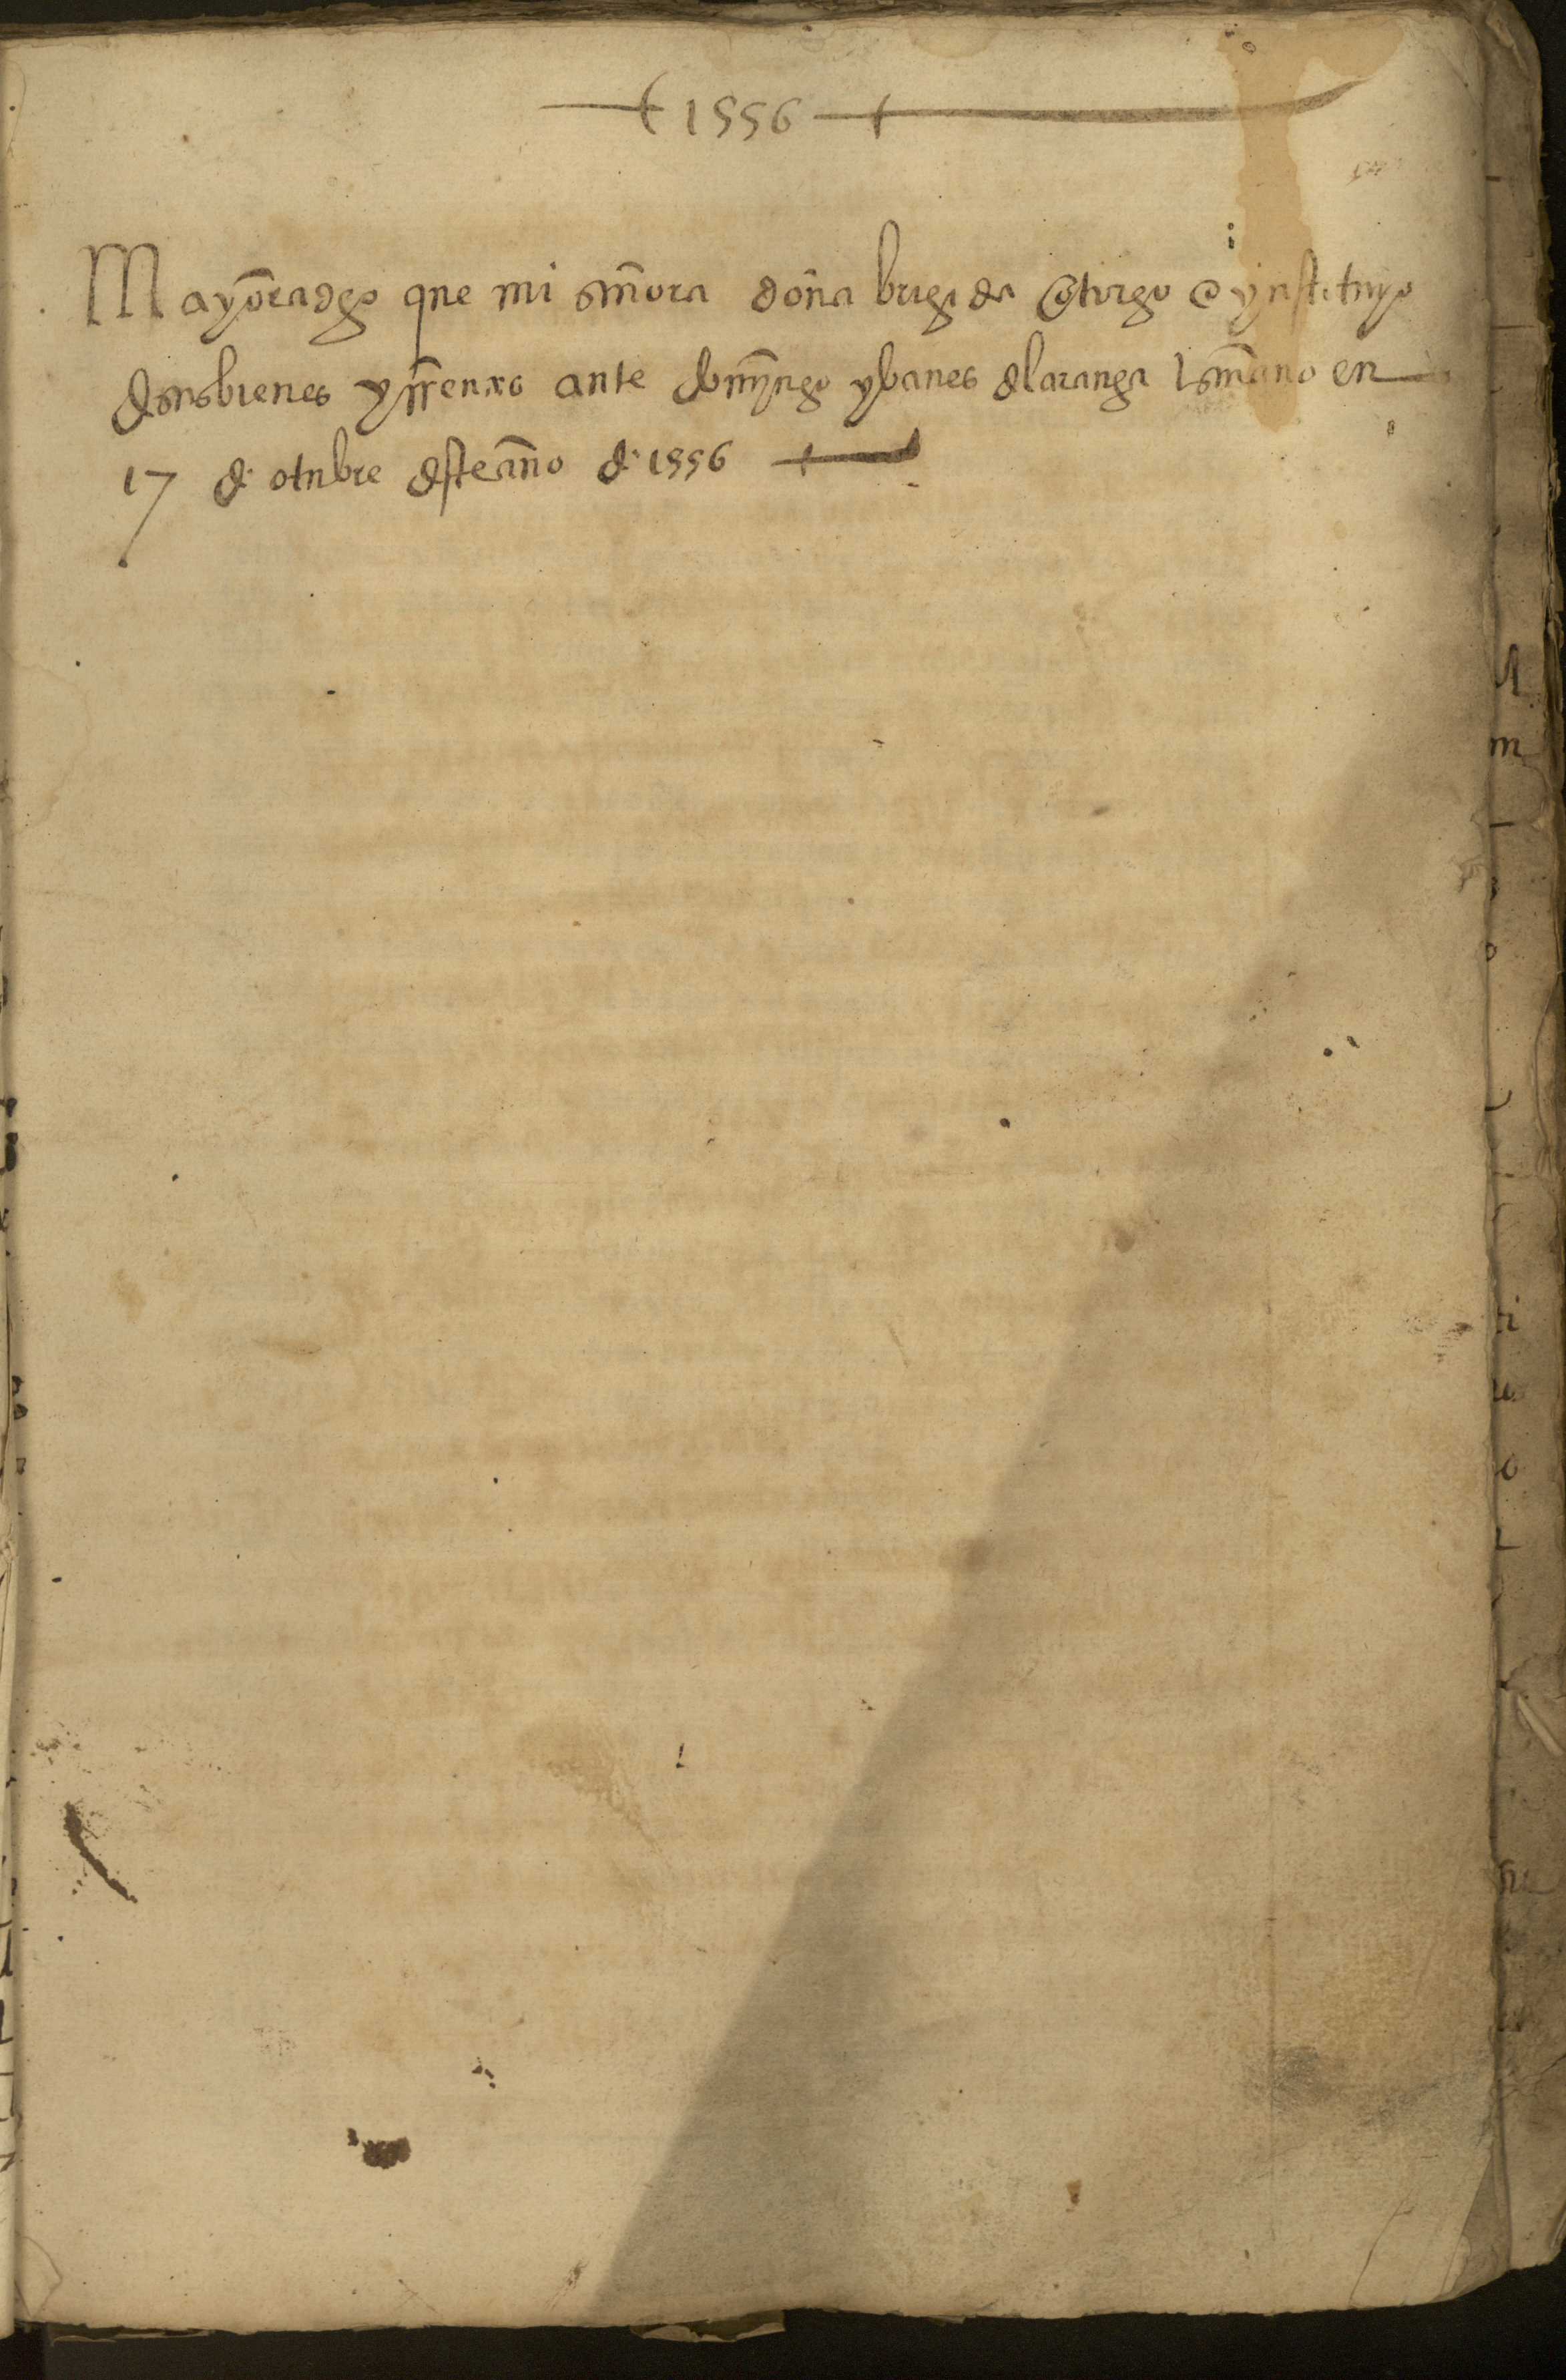 1556
Mayoradgo que mi señora doña brigida otorgo e ynstituyo
de sus bienes ante domyngo ybanes de laranga escriuano en
17 de otubre deste año de 1556